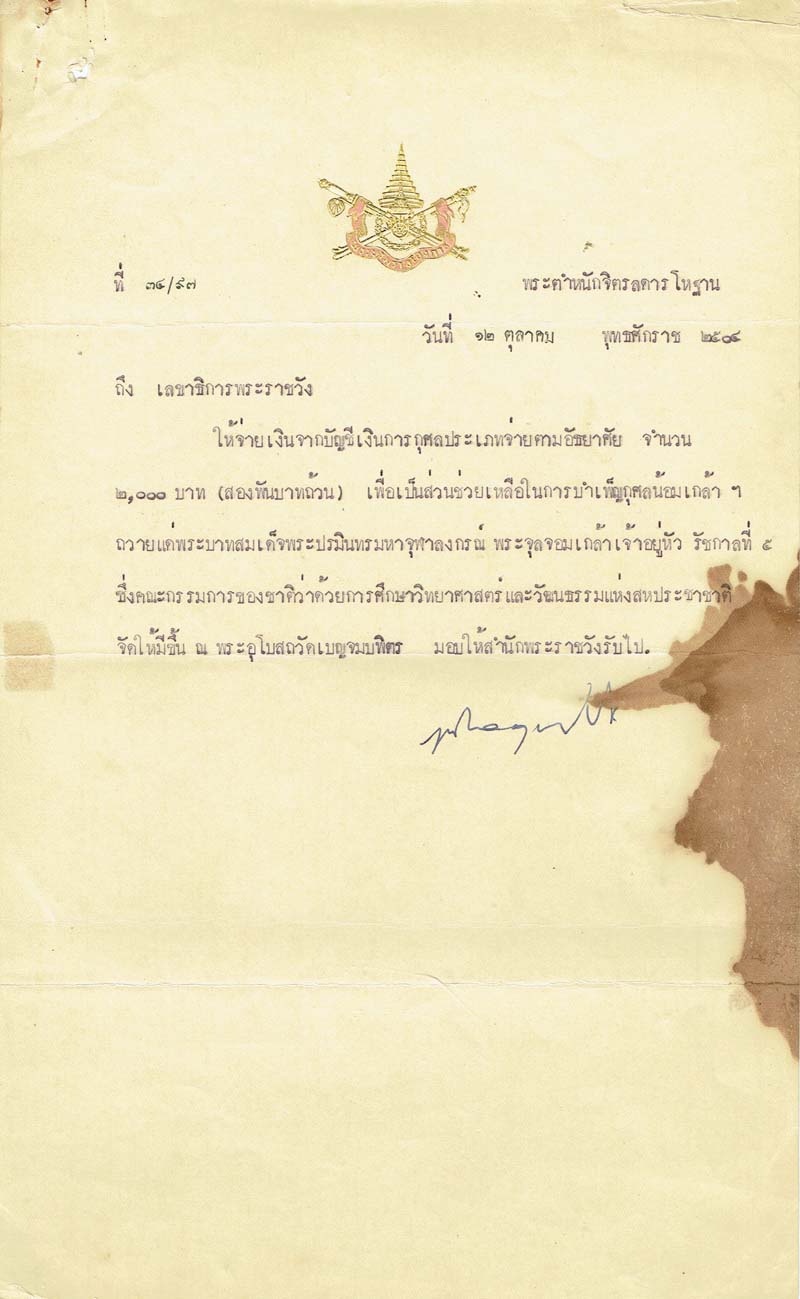 ที่ ๓๔/๙๗ พระตำหนักจิตรลดารโหฐาน
วันที่ ๑๒ ตุลาคม พุทธศักราช ๒๕๐๔
ถึง เลขาธิการพระราชวัง
ให้จ่ายเงินจากบัญชีเงินการกุศลประเภทจ่ายตามอัธยาศัย จำนวน
๒,๐๐๐ บาท (สองพันบาทถ้วน) เพื่อเป็นส่วนช่วยเหลือในการบำเพ็ญกุศลน้อมเกล้า ฯ
ถวายแด่พระบาทสมเด็จพระปรมินทรมหาจุฬาลงกรณ์ พระจุลจอมเกล้าเจ้าอยู่หัว รัชกาลที่ ๕
ซึ่งคณะกรรมการของชาติว่าด้วยการศึกษาวิทยาศาสตร์และวัฒนธรรมแห่งสหประชาชาติ
จัดให้มีขึ้น ณ พระอุโบสถวัดเบญจมบพิตร มอบให้สำนักพระราชวังรับไป.